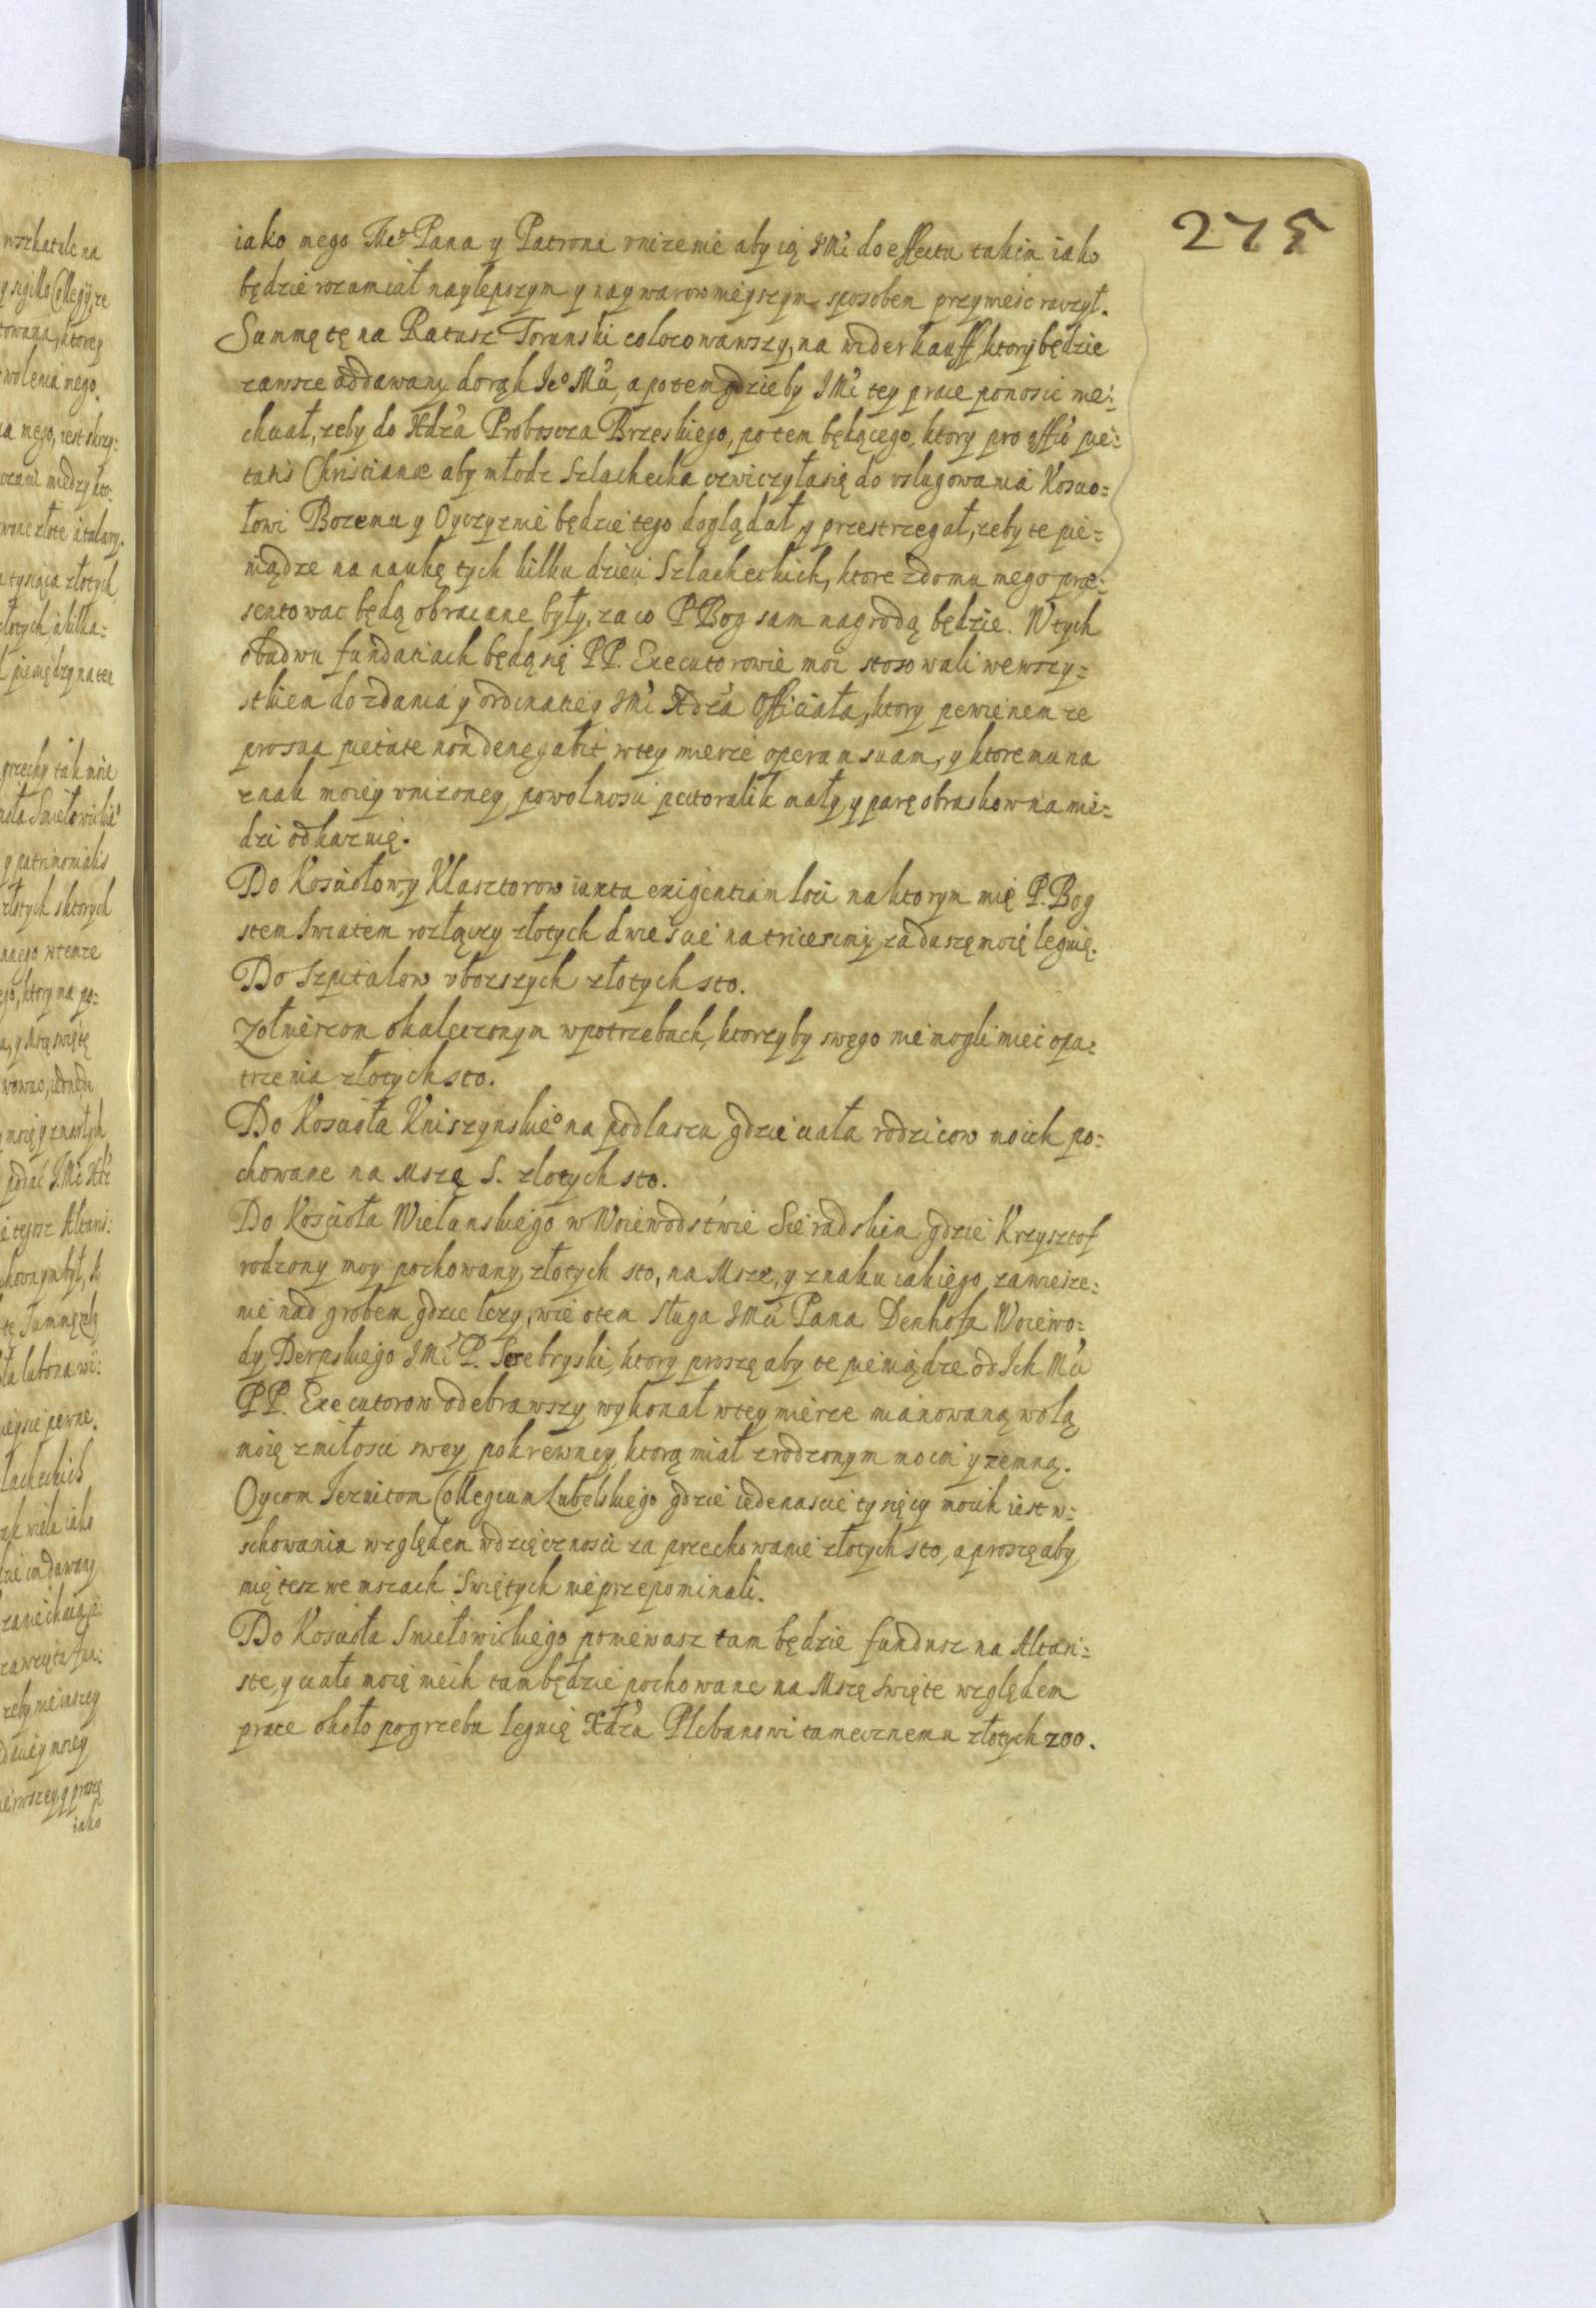 275
iako mego Me° Pana y Patrona vnizenie aby ią JMć do effectu takim iako
będzie rozumiał naylepszym y naywarownieyszym sposobem przywieśc raczył.
Summę tę na Ratusz Torunski colocowawszy, na widerkauff, ktory będzie
zawsze oddawany do rąk Je° Mći, a potem gdzie by JMć tey prace ponosic nie:
chciał, zeby do Xdza Proboscza Brzeskiego, potem będącego, ktory pro offio pie:
tatis Christianæ aby młodz Szlachecka czwiczyła się do vsługowania Koscio=
łowi Bozemu y Oyczyznie będzie tego doglądał y przestrzegał, zeby te pie=
niądze na naukę tych kilku dzieci Szlacheckich, ktore z domu mego præ:
sentowac będą obracane były, za co P Bog sam nagrodą będzie. W tych
obudwu fundatiach będą się PP. Executorowie moi stosowali we wszy=
stkiem do zdania y ordinatiey JMć Xdza Officiała, ktory pewienem ze
pro sua pietate non denegabit w tey mierze operam suam, y ktoremu na
znak moiey vnizoney powolnosci pectoralik mały y parę obraskow na mie=
dzi odkaznię.
Do Kosciołow y Klasztorow iuxta exigentiam loci na ktorym mię P. Bog
stem Swiatem rozłączy złotych dwie scie na tricesimy za duszę moię leguię.
Do Szpitalow vbozszych złotych sto.
Zołnierzom okaleczonym w potrzebach, ktorzy by swego nie mogli miec opa=
trzenia złotych sto.
Do Koscioła Kniszynskie° na podlaszu gdzie ciała rodzicow moich po:
chowane na Mszą S. złotych sto.
Do Kościoła Wielunskiego w Woiewodstwie Sieradskim gdzie Krzysztof
rodzony moy pochowany złotych sto, na Msze, y znaku iakiego zawiesze:
nie nad grobem gdzie lezy, wie o tem sługa JMći Pana Denhofa Woiewo:
dy Derpskiego JMć P. Srebryski, ktory proszę aby te pieniądze od Ich Mći
PP. Executorow odebrawszy wykonał w tey mierze mianowaną wolą
moię z miłosci swey pokrewney, ktorą miał z rodzonym moim y zemną.
Oycom Jezuitom Collegium Lubelskiego gdzie iedenascie tysięcy moich iest w=
schowaniu względem wdzięcznosci za przechowanie złotych sto, a proszę aby
mię tesz we mszach Swiętych nie przepominali.
Do Kosciola Smiełowickiego poniewasz tam będzie fundusz na Altari=
stę, y ciało moię niech tam będzie pochowane na Mszę Swięte względem
prace około pogrzebu leguię Xdza Plebanowi tamecznemu złotych 200.